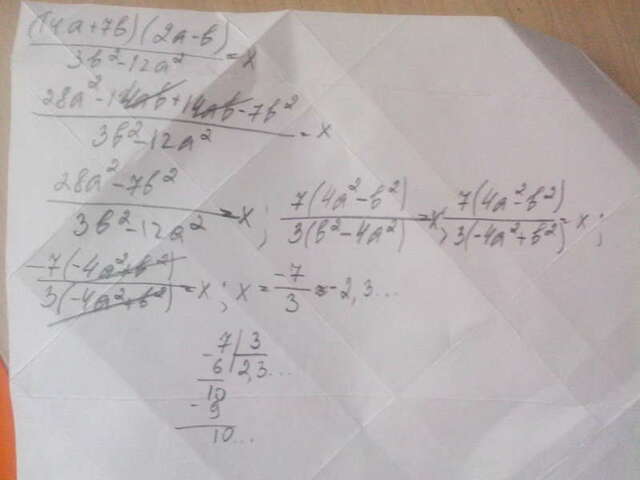 (14a+7b)(2a-b)/3b²-12a² = x
28a²-14ab+14ab-7b²/3b²-12a² = x
28a²-7b²/3b²-12a² = x; 7(4a²-b²)/3(b²-4a²) = x; 7(4a²-b²)/3(-4a²+b²) = x;
-7(-4a²+b²)/3(-4a²+b²) = x; x = -7/3 = -2,3...
-7|3
6|2,3...
10
-9
10...